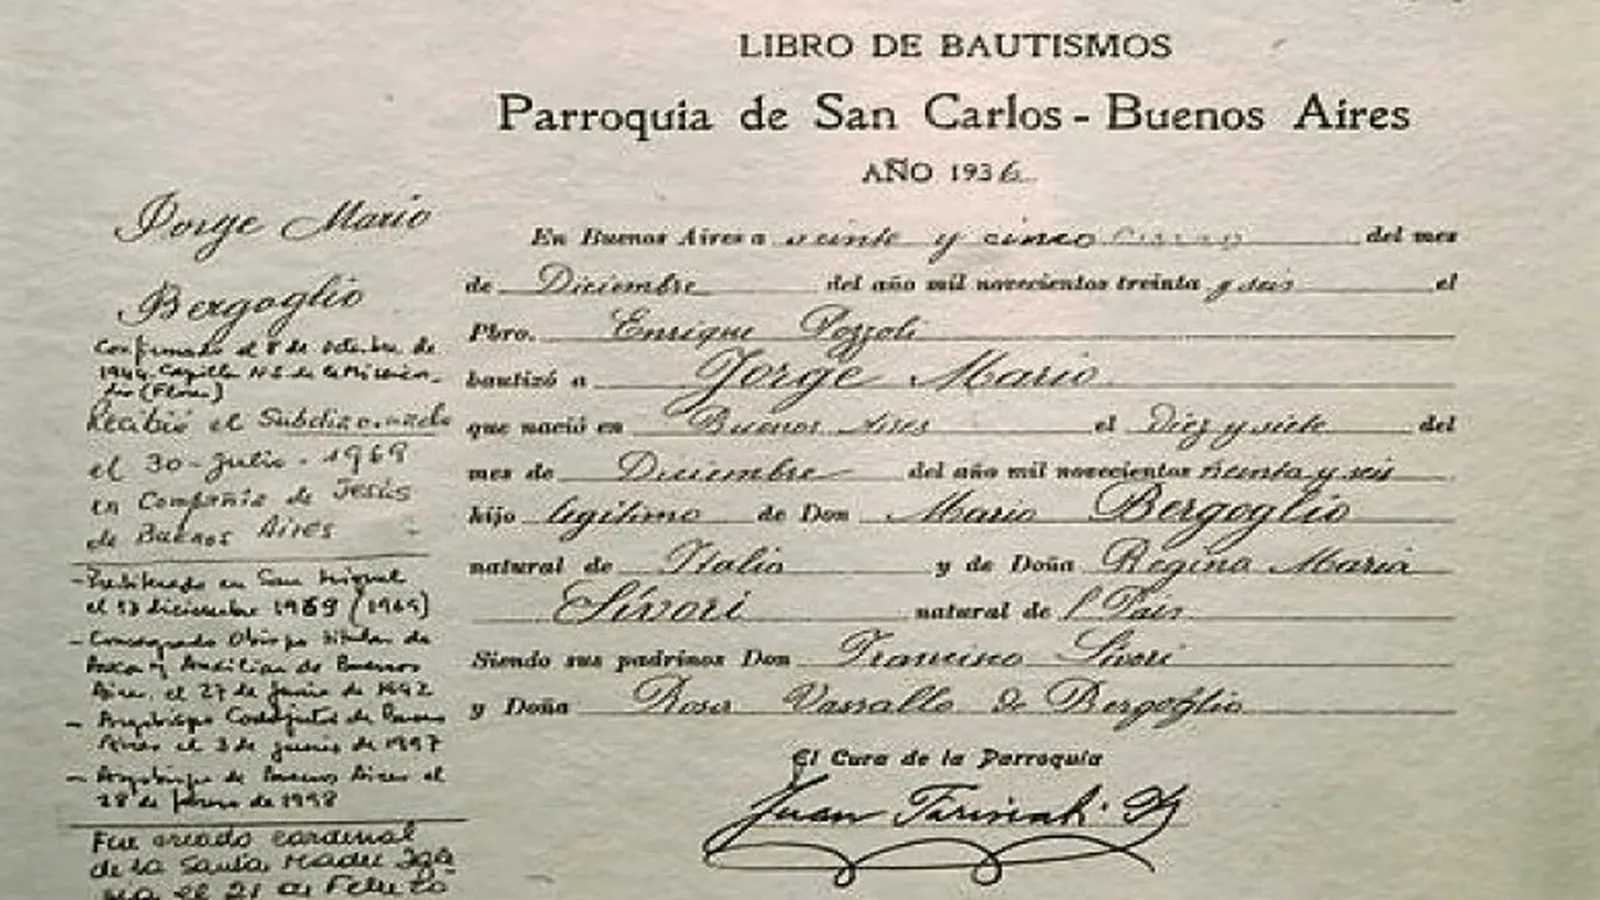 LIBRO DE BAUTISMOS
Parroquia de San Carlos - Buenos Aires
AÑO 1936
Jorge Mario
Bergoglio
Confirmado el 8 de octubre de
1944. Capilla N. S. de la Misericor-
dia (Flores)
Recibió el Subdiaconado
el 30-Julio-1969
en Compañía de Jesús
de Buenos Aires
- Presbiterado en San Miguel
el 13 diciembre 1969 (1969)
- Consagrado Obispo titular de
Auca y Auxiliar de Buenos
Aires el 27 de junio de 1992
- Arzobispo Coadjutor de Buenos
Aires el 3 de junio de 1997
- Arzobispo de Buenos Aires el
28 de febrero de 1998
Fue creado cardenal
de la Santa Madre Igle
el 21 de Febrero
En Buenos Aires a veinte y cinco del mes
de Diciembre del año mil novecientos treinta y seis el
Pbro. Enrique Pozzoli
bautizó a Jorge Mario
que nació en Buenos Aires el diez y siete del
mes de Diciembre del año mil novecientos treinta y seis
hijo legítimo de Don Mario Bergoglio
natural de Italia y de Doña Regina María
Sívori natural de l País
Siendo sus padrinos Don Francisco Sívori
y Doña Rosa Vassallo de Bergoglio
El Cura de la Parroquia
Juan